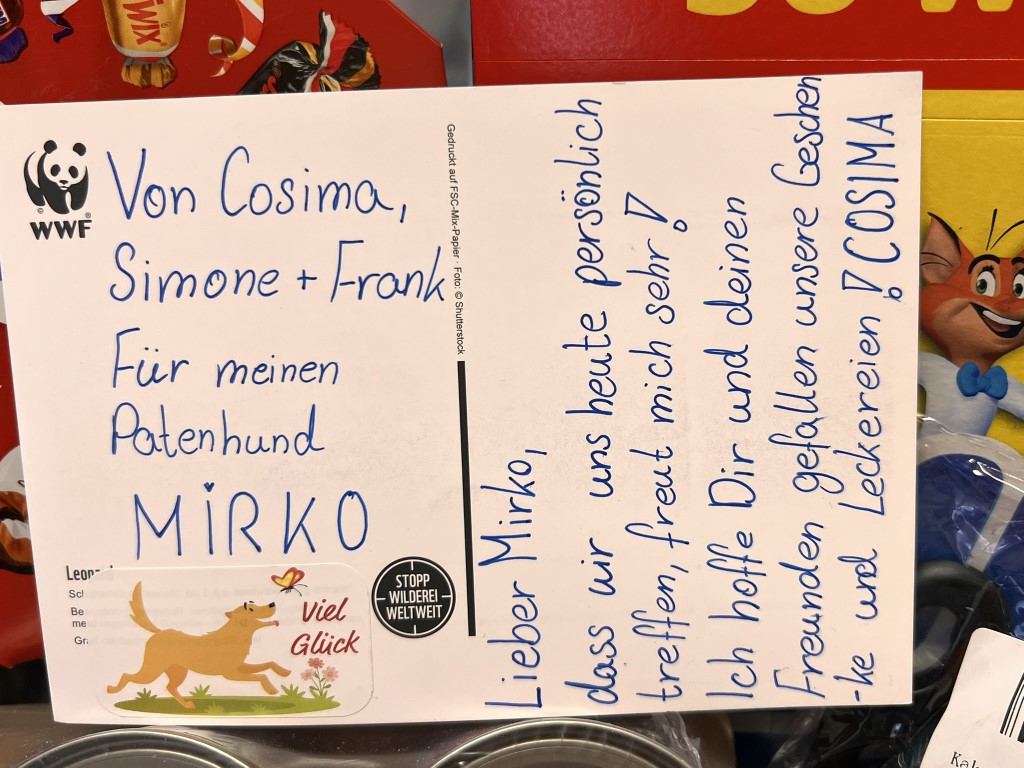 WIX
WWF
Von Cosima,
Simone + Frank
Für meinen
Patenhund
MiRKO
STOPP
WILDEREI
WELTWEIT
Viel
Glück
Gedruckt auf FSC-Mix-Papier · Foto: © Shutterstock
Lieber Mirko,
dass wir uns heute persönlich
treffen, freut mich sehr!
Ich hoffe Dir und deinen
Freunden gefallen unsere Geschen
-ke und Leckereien! COSIMA